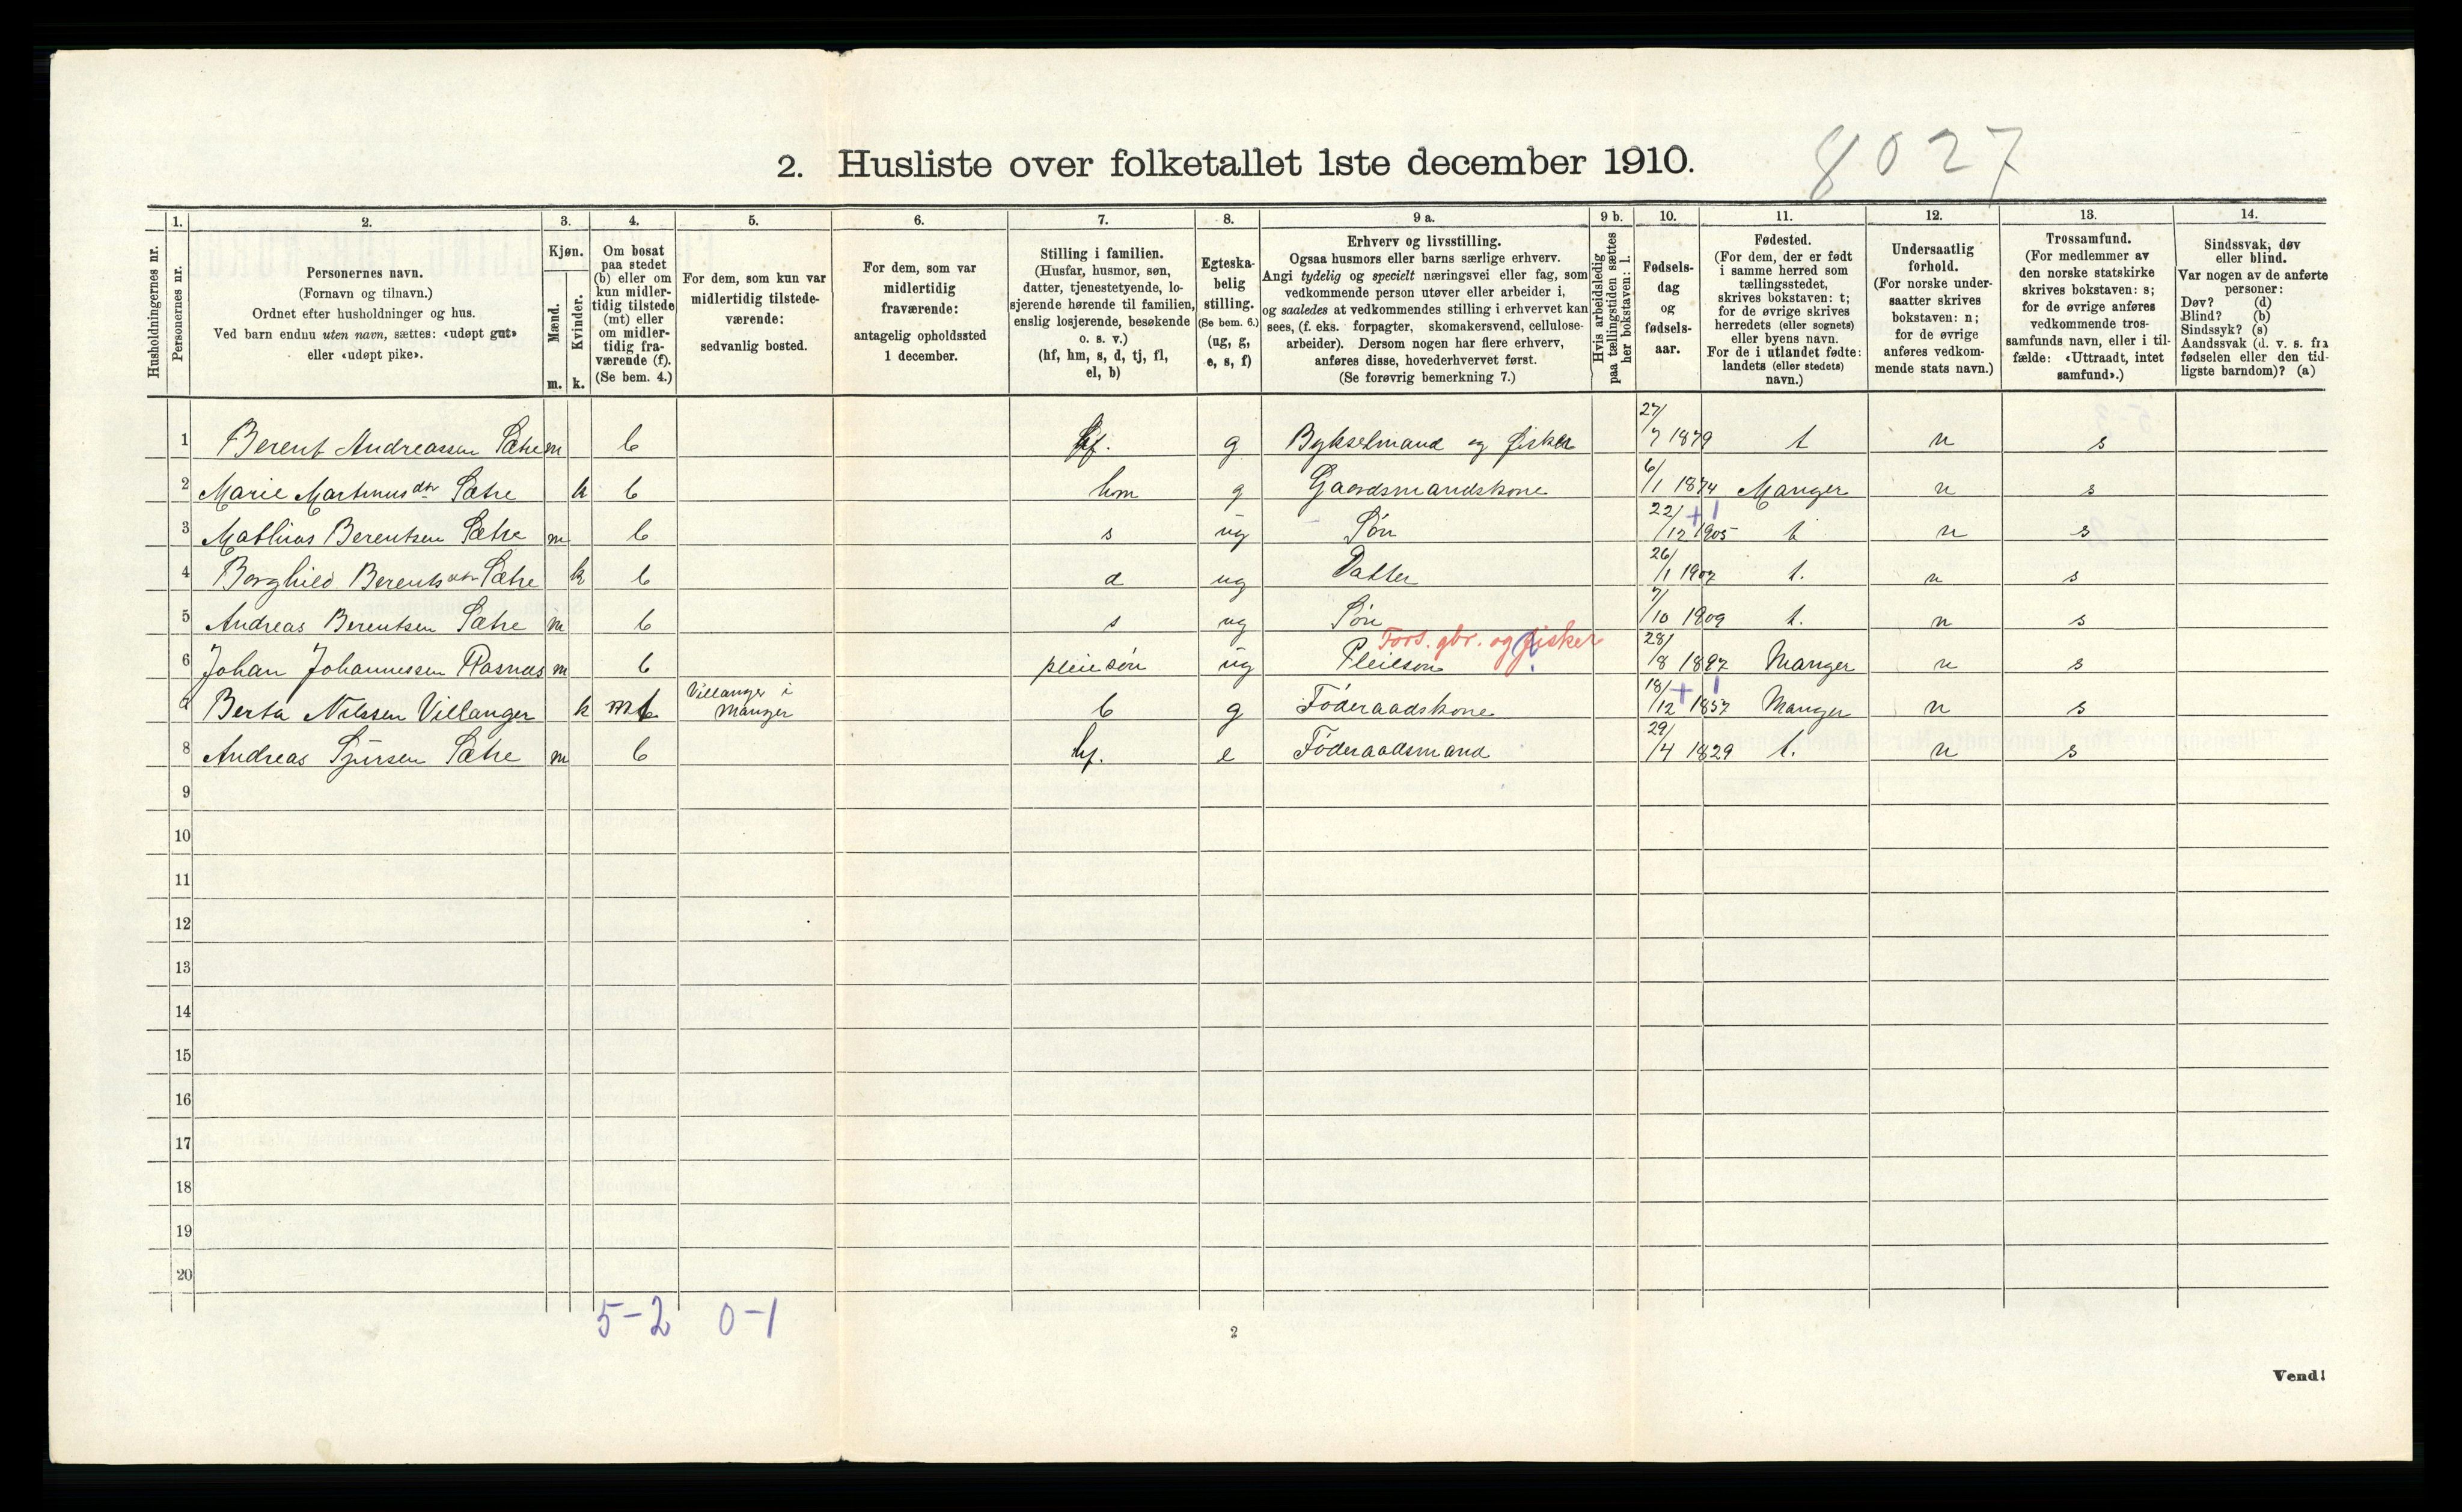 2. Husliste over folketallet 1ste december 1910.
8027
Husholdningernes nr.
1.
Personernes nr.
2.
Personernes navn.
(Fornavn og tilnavn.)
Ordnet efter husholdninger og hus.
Ved barn endnu uten navn, sættes: «udøpt gut»
eller «udøpt pike».
3.
Kjøn.
Mænd.
Kvinder.
m. k.
4.
Om bosat
paa stedet
(b) eller om
kun midler-
tidig tilstede
(mt) eller
om midler-
tidig fra-
værende (f).
(Se bem. 4.)
5.
For dem, som kun var
midlertidig tilstede-
værende:
sedvanlig bosted.
6.
For dem, som var
midlertidig
fraværende:
antagelig opholdssted
1 december.
7.
Stilling i familien.
(Husfar, husmor, søn,
datter, tjenestetyende, lo-
sjerende hørende til familien,
enslig losjerende, besøkende
o. s. v.)
(hf, hm, s, d, tj, fl,
el, b)
8.
Egteska-
belig
stilling.
(Se bem. 6.)
(ug, g,
e, s, f)
9 a.
Erhverv og livsstilling.
Ogsaa husmors eller barns særlige erhverv.
Angi tydelig og specielt næringsvei eller fag, som
vedkommende person utøver eller arbeider i,
og saaledes at vedkommendes stilling i erhvervet kan
sees, (f. eks. forpagter, skomakersvend, cellulose-
arbeider). Dersom nogen har flere erhverv,
anføres disse, hovederhvervet først.
(Se forøvrig bemerkning 7.)
9 b.
Hvis arbeidsledig
paa tællingstiden sættes
her bokstaven: l.
10.
Fødsels-
dag
og
fødsels-
aar.
11.
Fødested.
(For dem, der er født
i samme herred som
tællingsstedet,
skrives bokstaven: t;
for de øvrige skrives
herredets (eller sognets)
eller byens navn.
For de i utlandet fødte:
landets (eller stedets)
navn.)
12.
Undersaatlig
forhold.
(For norske under-
saatter skrives
bokstaven: n;
for de øvrige
anføres vedkom-
mende stats navn.)
13.
Trossamfund.
(For medlemmer av
den norske statskirke
skrives bokstaven: s;
for de øvrige anføres
vedkommende tros-
samfunds navn, eller i til-
fælde: «Uttraadt, intet
samfund».)
14.
Sindssvak, døv
eller blind.
Var nogen av de anførte
personer:
Døv? (d)
Blind? (b)
Sindssyk? (s)
Aandssvak (d. v. s. fra
fødselen eller den tid-
ligste barndom)? (a)
1 Berent Andreassen Sætre m b hf. g Bykselmand og fisker 27/7 1879 t n s
2 Marie Martinusdtr Sætre k b hm g Gaardsmandskone 6/1 1874 Manger n s
3 Mathias Berentsen Sætre m b s ug Søn 22/12 1905 t n s
4 Borghild Berentsdtr Sætre k b d ug Datter 26/1 1907 t. n s
5 Andreas Berentsen Sætre m b s ug Søn 7/10 1909 t. n s
Fors. gbr. og fisker
6 Johan Johannessen Rosnæs m b pleiesøn ug Pleiesøn 28/8 1897 Manger n s
Berta Nilssen Villanger k mt Villanger i Manger b g Föderaadskone 18/12 1857 Manger n s
8 Andreas Sjursen Sætre m b hf. e Föderaadsmand 29/4 1829 t. n s
9
10
11
12
13
14
15
16
17
18
19
20
5-2 0-1
2
Vend!